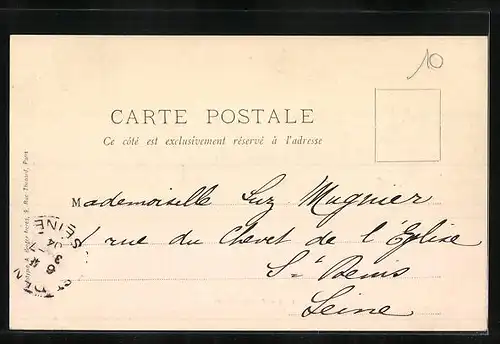 10
CARTE POSTALE
Ce côté est exclusivement réservé à l'adresse
Mademoiselle Suz Magnier
1 rue du Chevet de l'Église
St Denis
Seine
SEINE